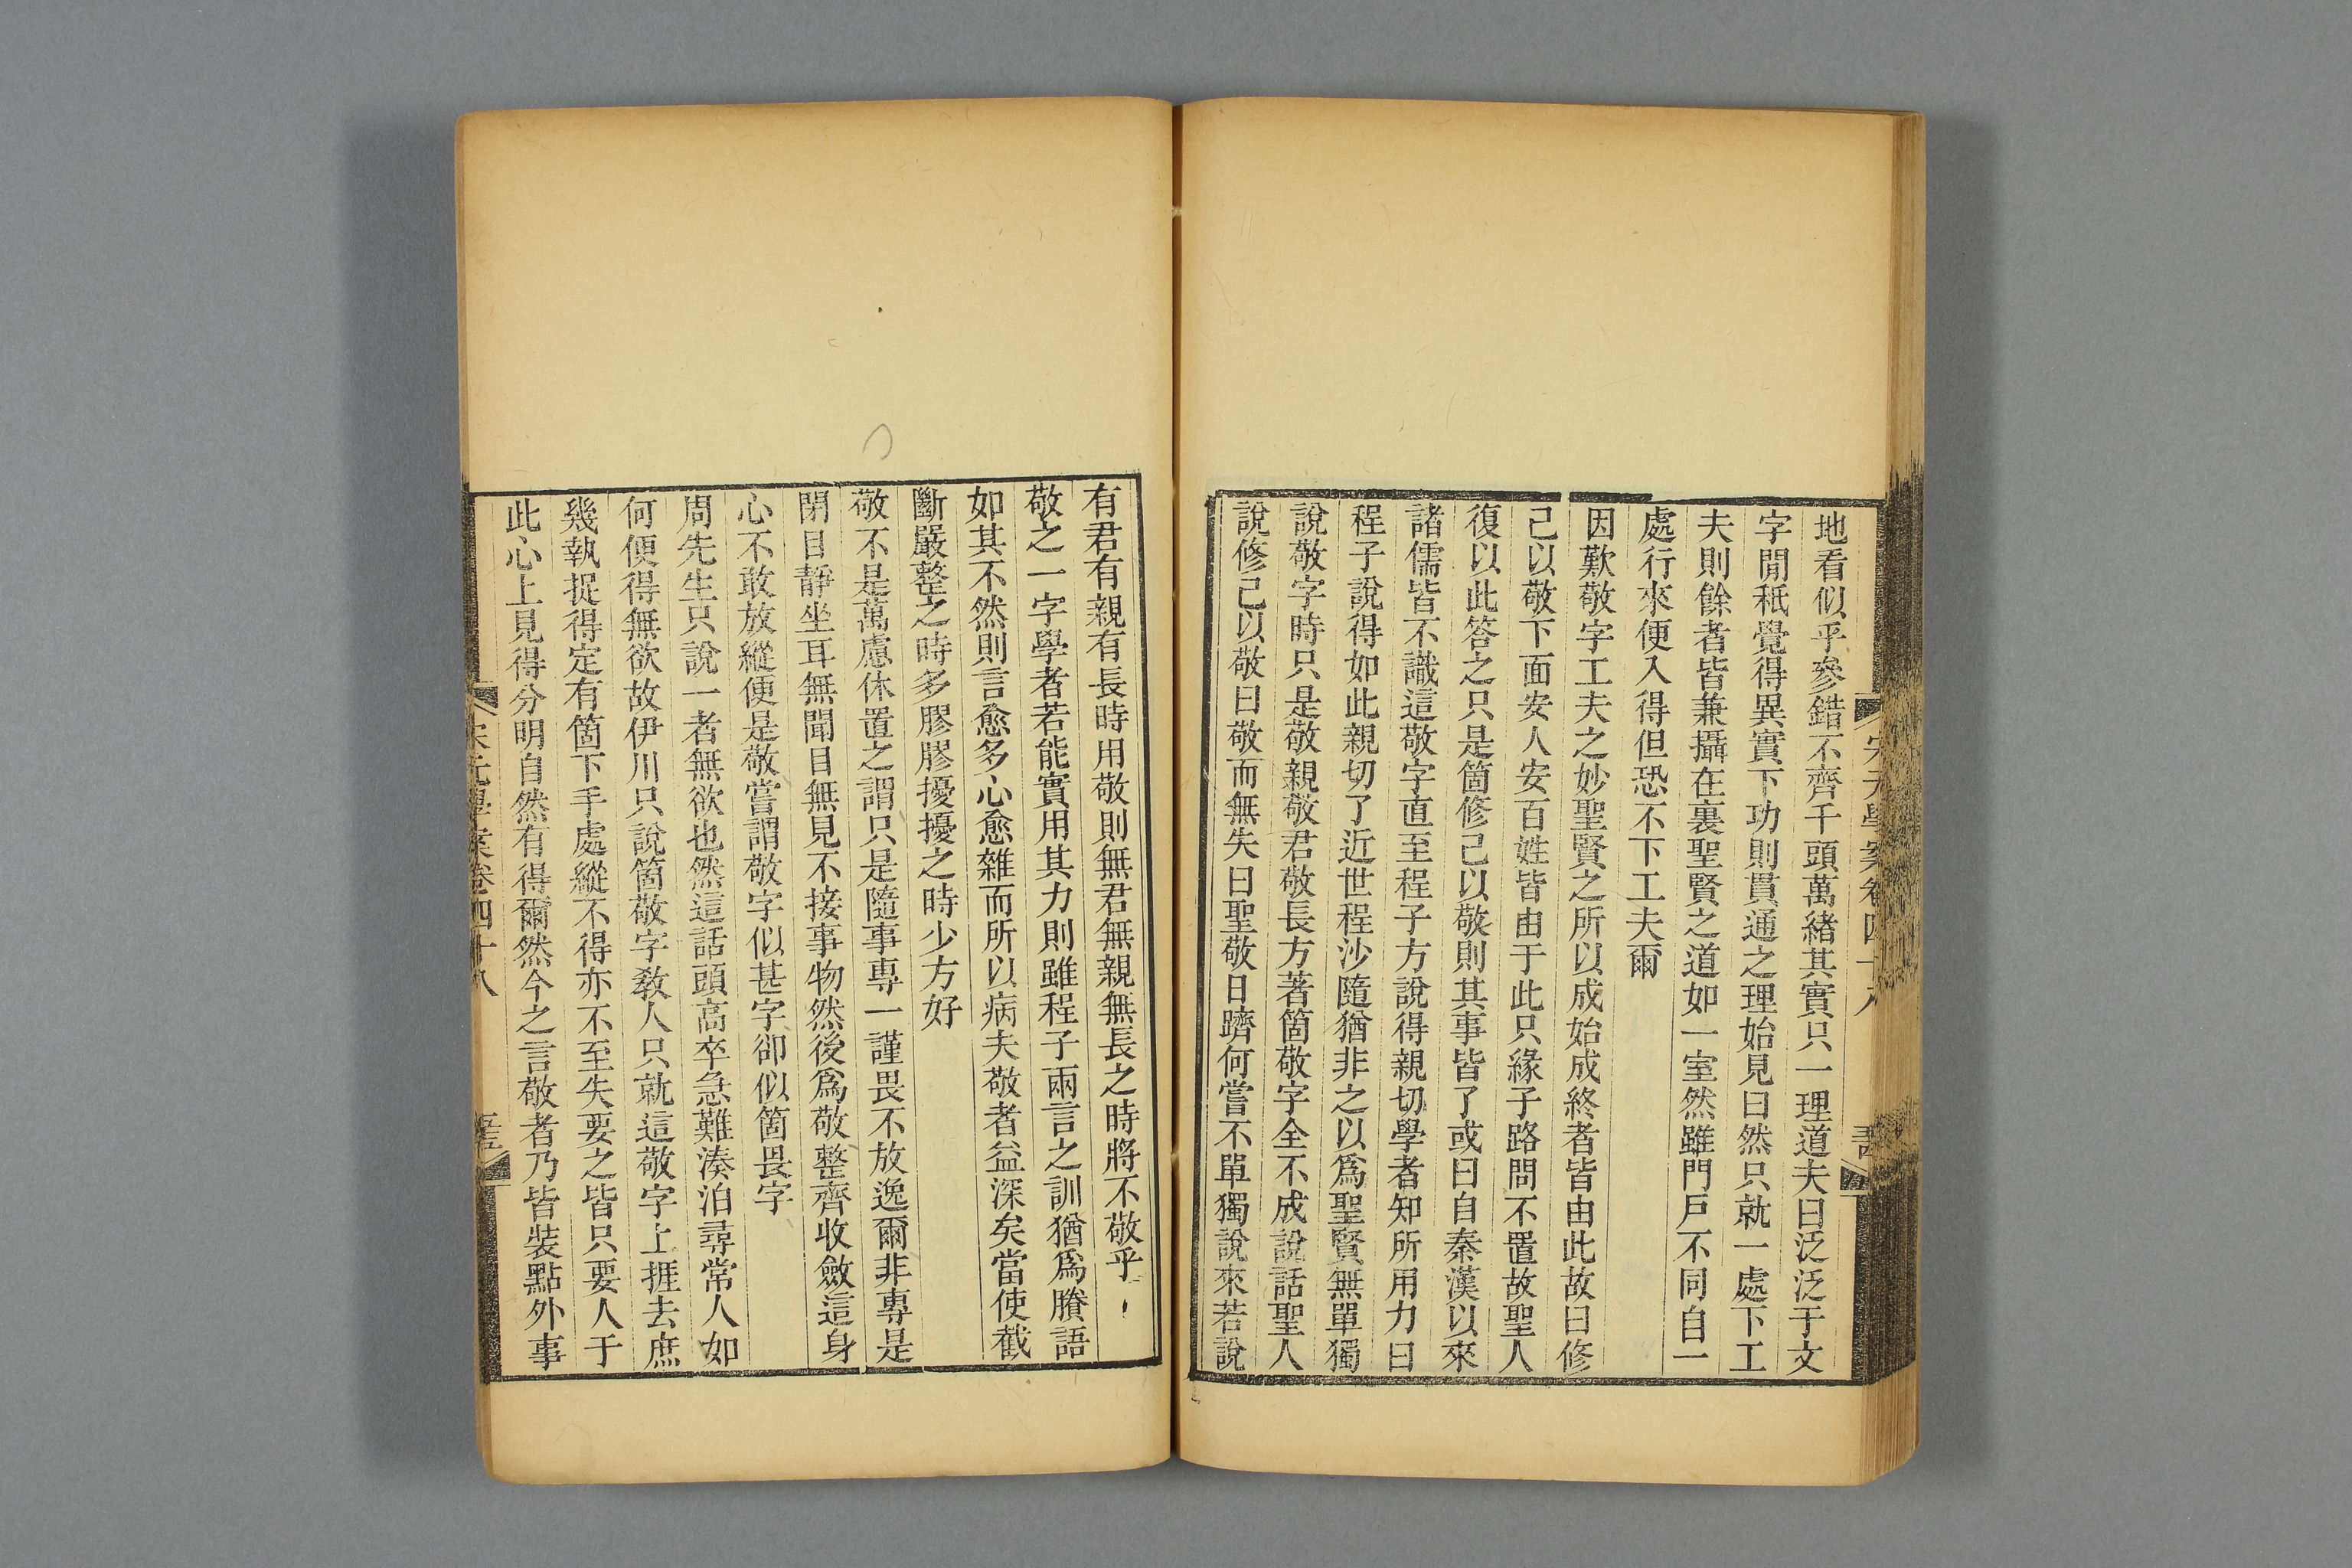 宋元學案卷四十八
地看似乎參錯不齊千頭萬緒其實只一理道夫曰泛泛于文
字閒秪覺得異實下功則貫通之理始見曰然只就一處下工
夫則餘者皆兼攝在裏聖賢之道如一室然雖門戶不同自一
處行來便入得但恐不下工夫爾
因歎敬字工夫之妙聖賢之所以成始成終者皆由此故曰修
己以敬下面安人安百姓皆由于此只緣子路問不置故聖人
復以此答之只是箇修己以敬則其事皆了或曰自秦漢以來
諸儒皆不識這敬字直至程子方說得親切學者知所用力曰
程子說得如此親切了近世程沙隨猶非之以爲聖賢無單獨
說敬字時只是敬親敬君敬長方著箇敬字全不成說話聖人
說修己以敬曰敬而無失曰聖敬日躋何嘗不單獨說來若說
有君有親有長時用敬則無君無親無長之時將不敬乎
敬之一字學者若能實用其力則雖程子兩言之訓猶爲賸語
如其不然則言愈多心愈雜而所以病夫敬者益深矣當使截
斷嚴整之時多膠膠擾擾之時少方好
敬不是萬慮休置之謂只是隨事專一謹畏不放逸爾非專是
閉目靜坐耳無聞目無見不接事物然後爲敬整齊收斂這身
心不敢放縱便是敬嘗謂敬字似甚字卻似箇畏字
周先生只說一者無欲也然這話頭高卒急難湊泊尋常人如
何便得無欲故伊川只說箇敬字教人只就這敬字上捱去庶
幾執捉得定有箇下手處縱不得亦不至失要之皆只要人于
此心上見得分明自然有得爾然今之言敬者乃皆裝點外事
宋元學案卷四十八